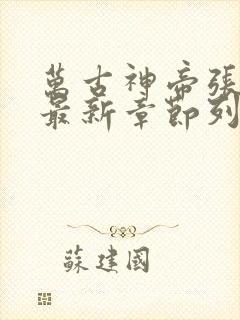 萬古神帝張
最新章節列
蘇建國